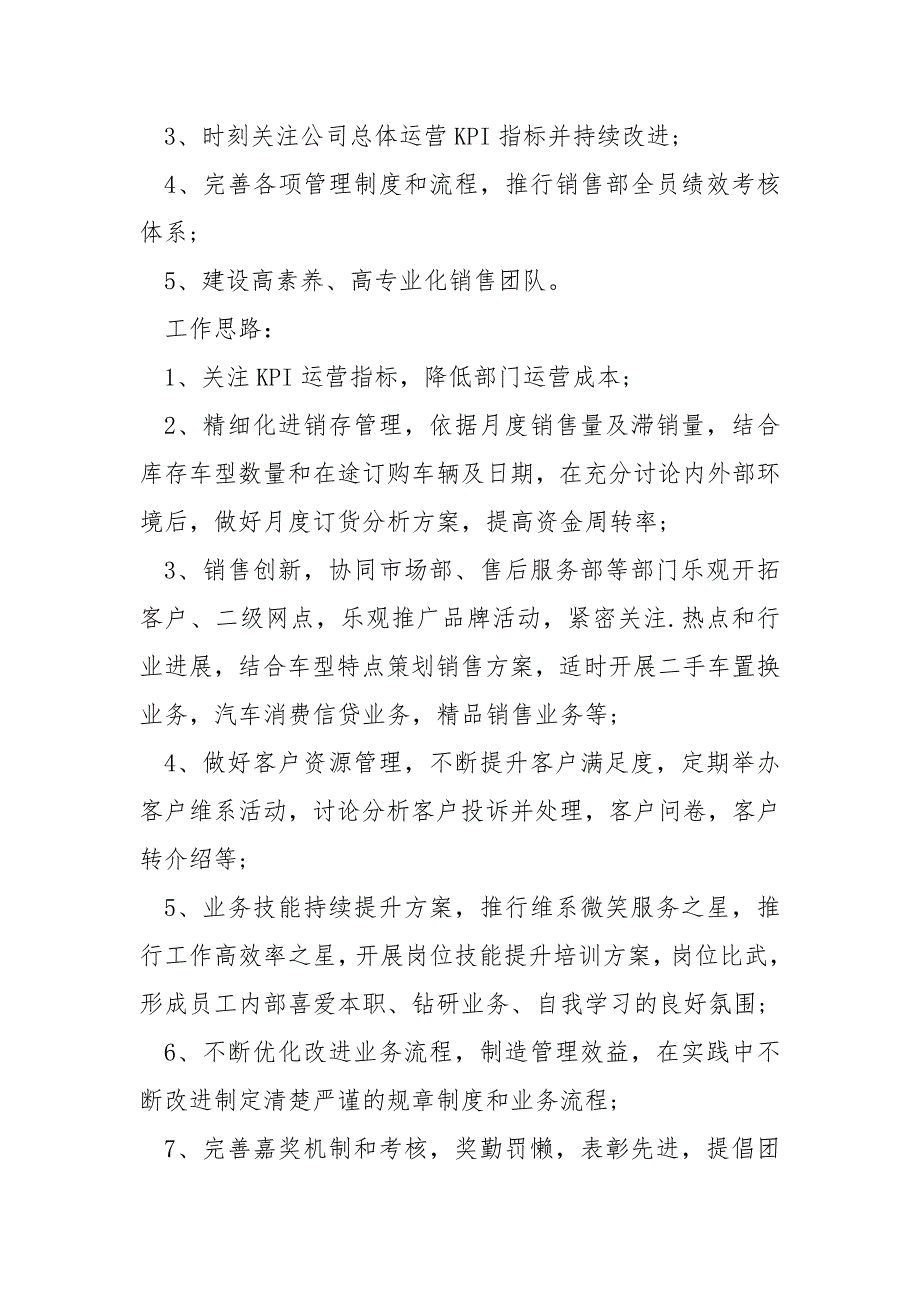 3、时刻关注公司总体运营 KPI 指标并持续改进;
4、完善各项管理制度和流程，推行销售部全员绩效考核
体系;
5、建设高素养、高专业化销售团队。
工作思路：
1、关注 KPI 运营指标，降低部门运营成本;
2、精细化进销存管理，依据月度销售量及滞销量，结合
库存车型数量和在途订购车辆及日期，在充分讨论内外部环
境后，做好月度订货分析方案，提高资金周转率;
3、销售创新，协同市场部、售后服务部等部门乐观开拓
客户、二级网点，乐观推广品牌活动，紧密关注.热点和行
业进展，结合车型特点策划销售方案，适时开展二手车置换
业务，汽车消费信贷业务，精品销售业务等;
4、做好客户资源管理，不断提升客户满足度，定期举办
客户维系活动，讨论分析客户投诉并处理，客户问卷，客户
转介绍等;
5、业务技能持续提升方案，推行维系微笑服务之星，推
行工作高效率之星，开展岗位技能提升培训方案，岗位比武，
形成员工内部喜爱本职、钻研业务、自我学习的良好氛围;
6、不断优化改进业务流程，制造管理效益，在实践中不
断改进制定清楚严谨的规章制度和业务流程;
7、完善嘉奖机制和考核，奖勤罚懒，表彰先进，提倡团